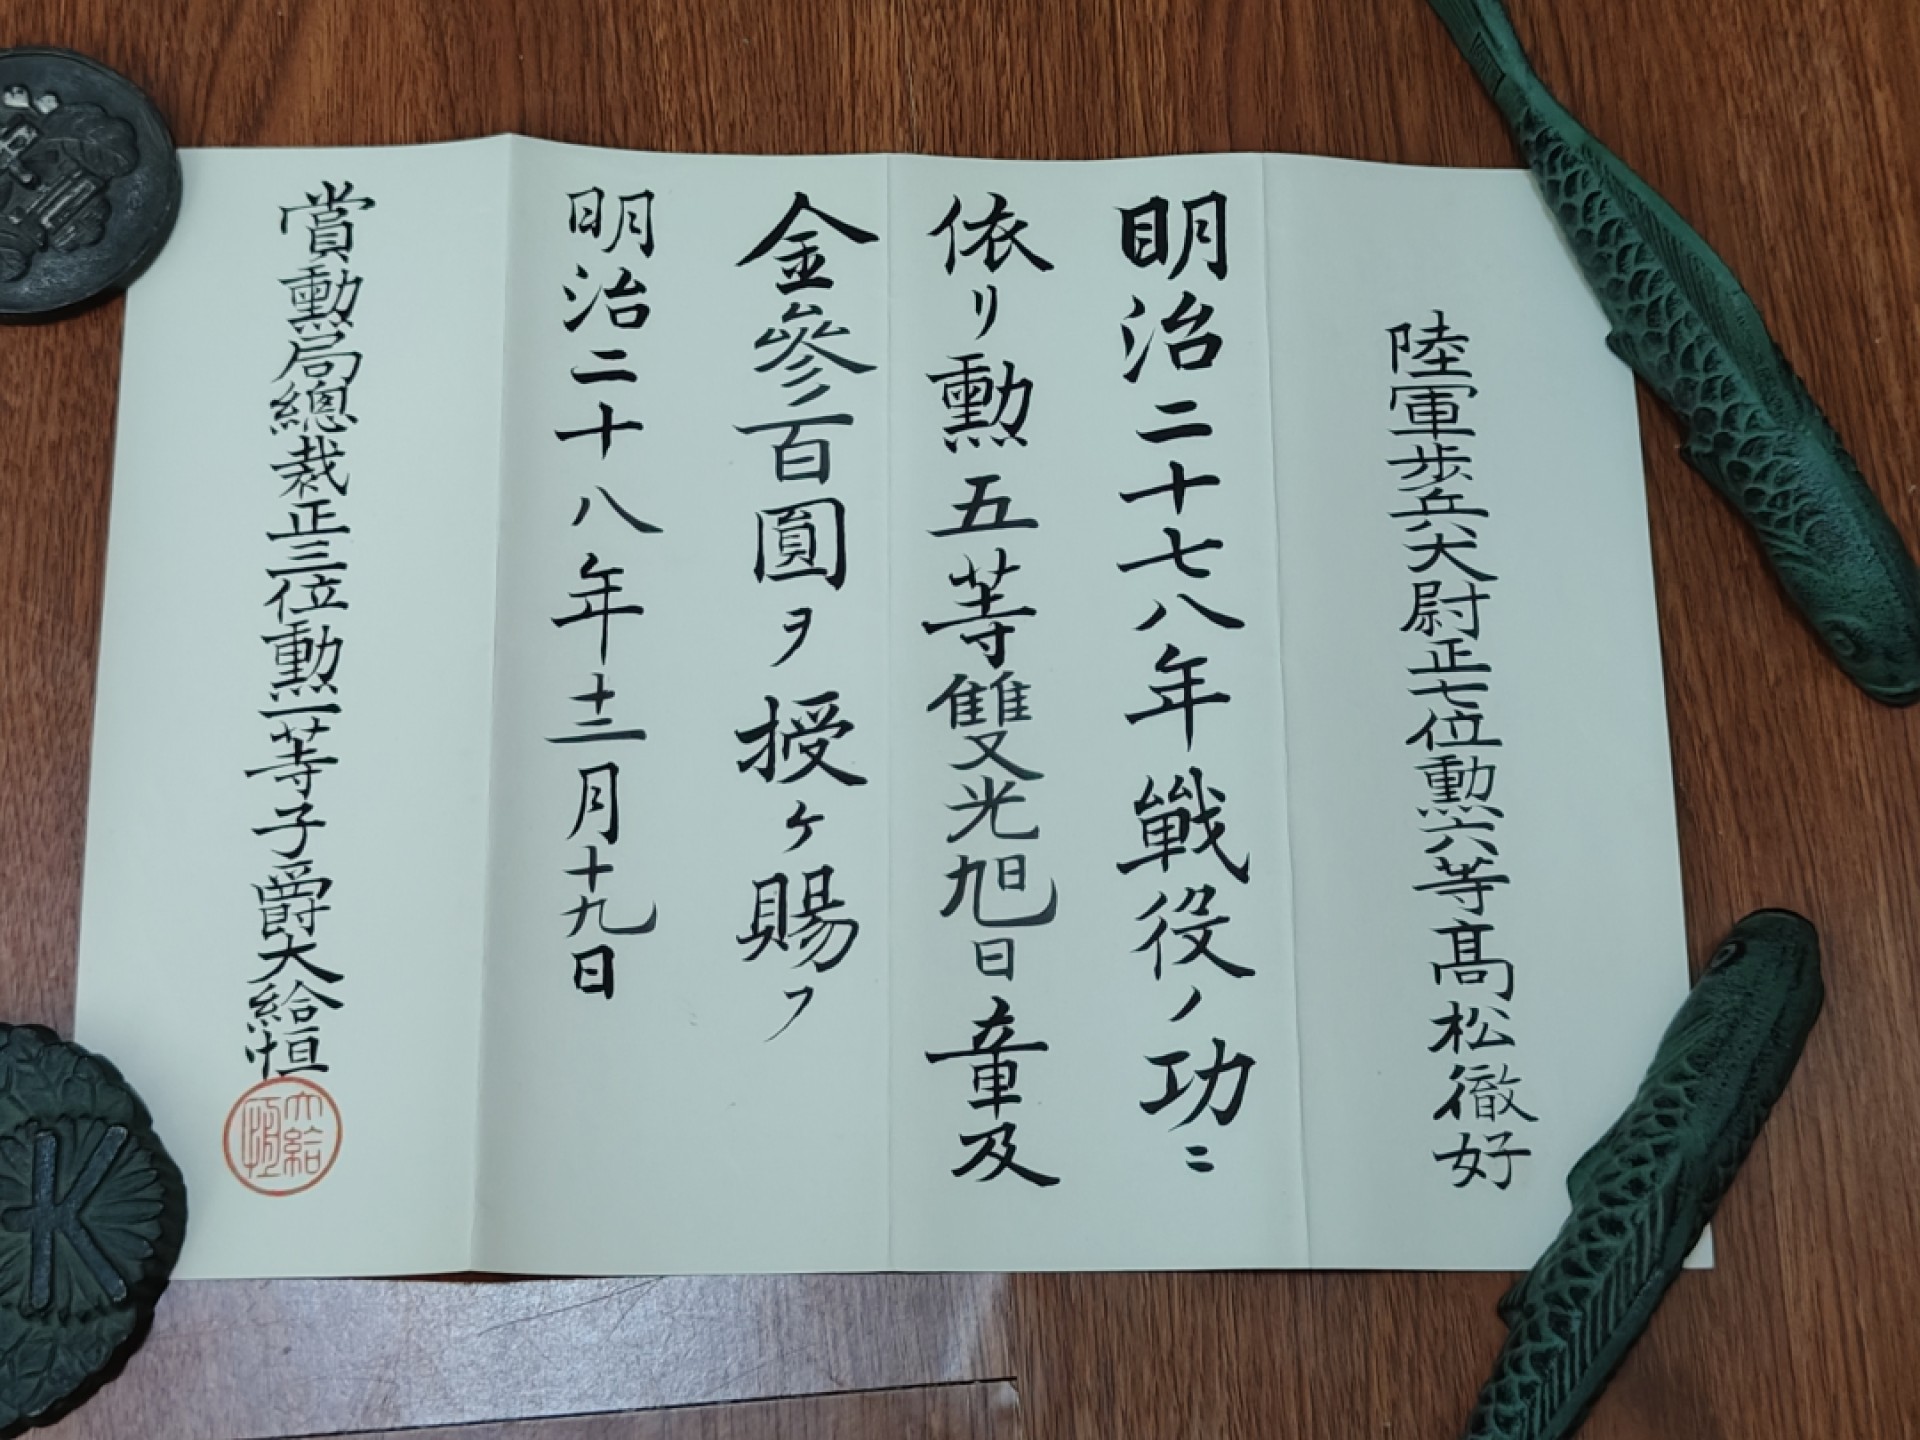 陸軍歩兵大尉正七位勲六等髙松徹好
明治二十七八年戰役ノ功ニ
依リ勲五等雙光旭日章及
金參百圓ヲ授ケ賜フ
明治二十八年十二月十九日
賞勲局總裁正三位勲一等子爵大給恒
大給
恒